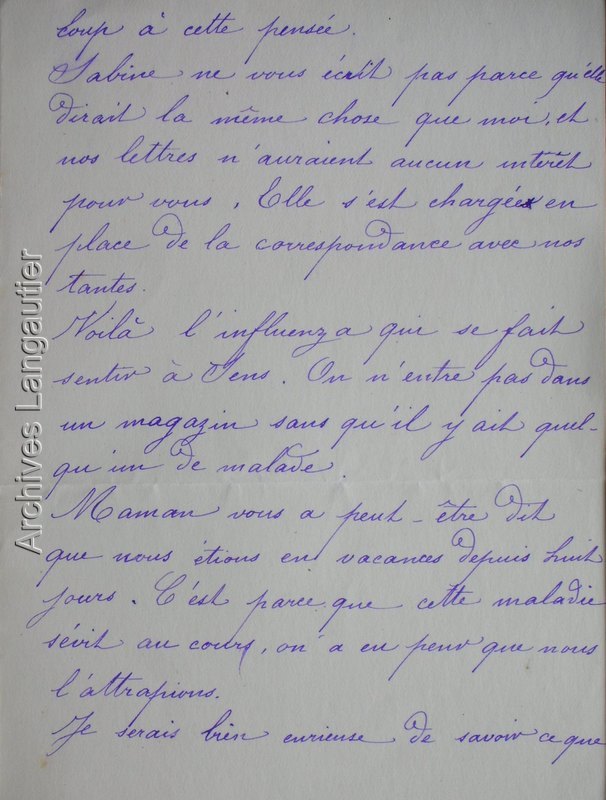 coup à cette pensée.
Sabine ne vous écrit pas parce qu'elle
dirait la même chose que moi, et
nos lettres n'auraient aucun intérêt
pour vous. Elle s'est chargée en
place de la correspondance avec nos
tantes.
Voilà l'influenza qui se fait
sentir à Sens. On n'entre pas dans
un magazin sans qu'il y ait quel-
qu'un de malade.
Maman vous a peut-être dit
que nous étions en vacances depuis huit
jours. C'est parce que cette maladie
sévit au cours, on a eu peur que nous
l'attrapions.
Je serais bien curieuse de savoir ce que
Archives Langautier